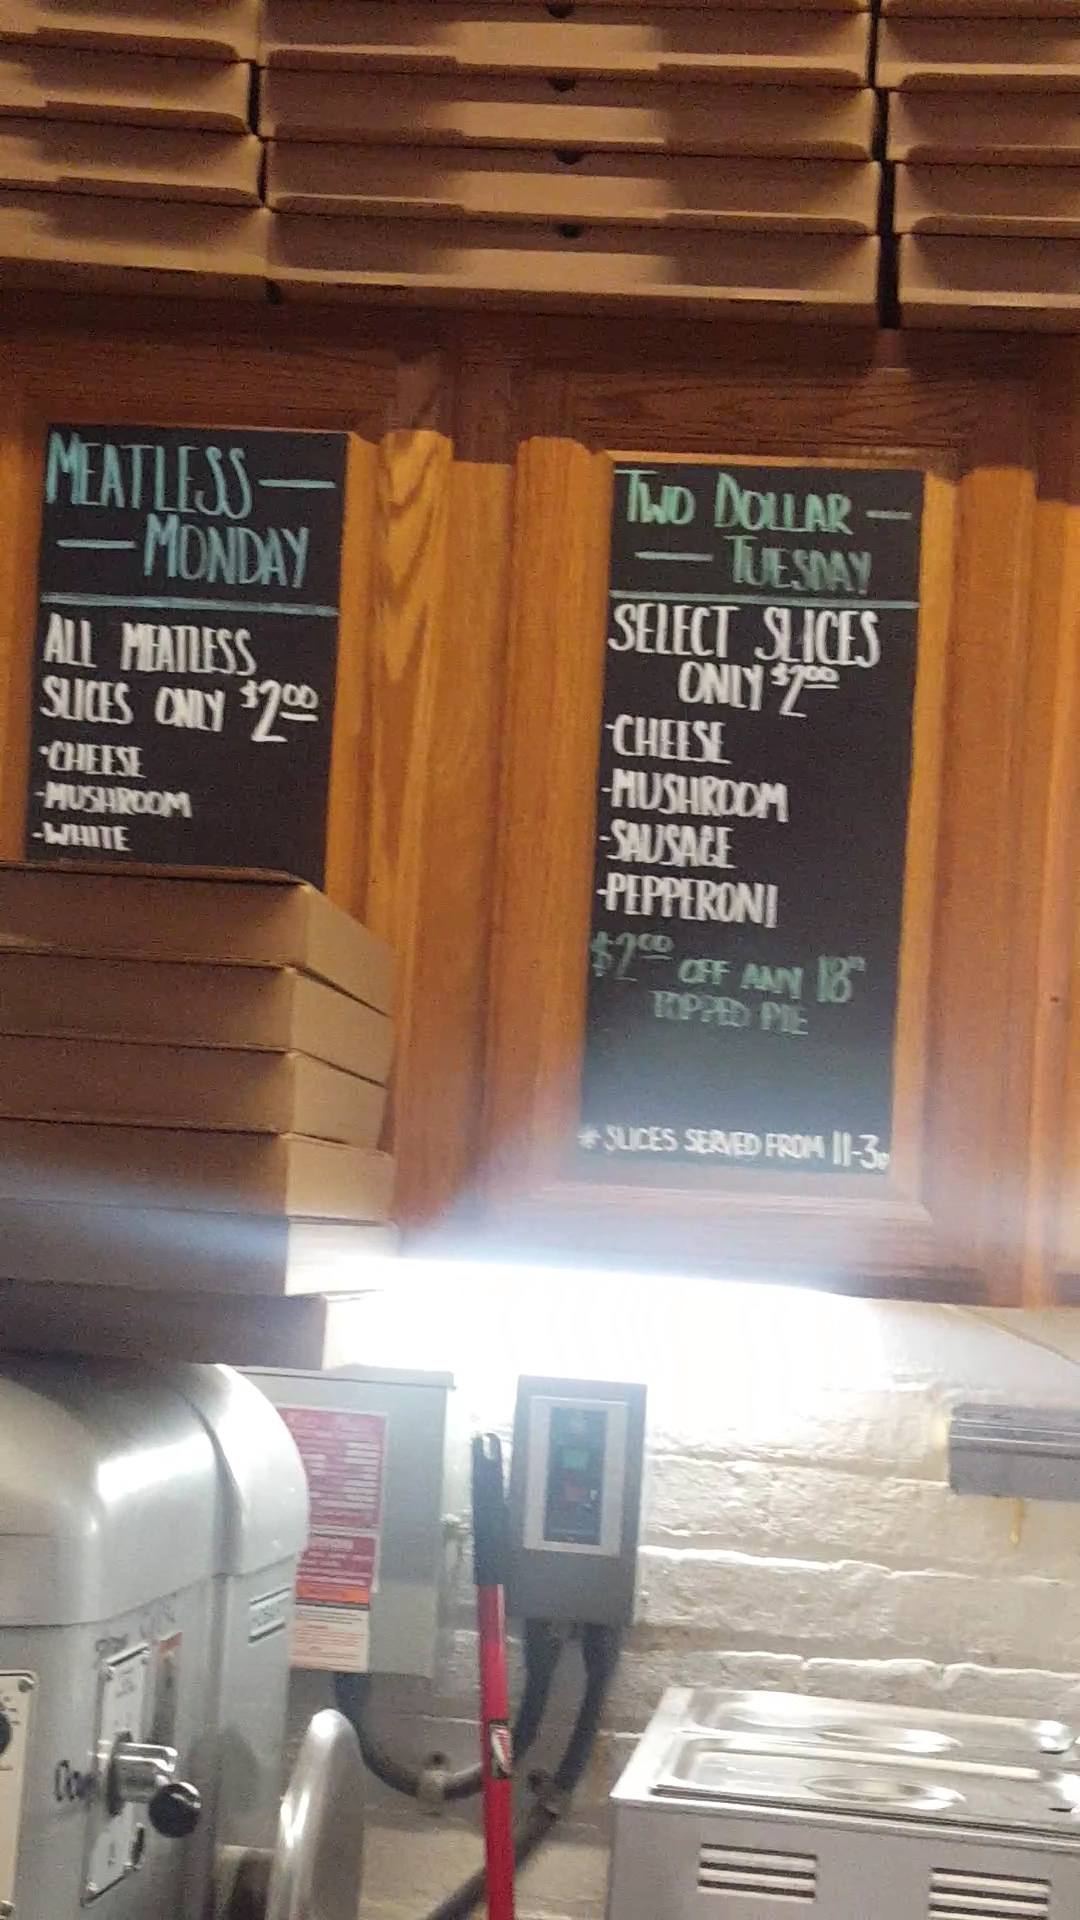 MEATLESS —
— MONDAY
ALL MEATLESS
SLICES ONLY $2.00
-CHEESE
-MUSHROOM
-WHITE
TWO DOLLAR —
— TUESDAY
SELECT SLICES
ONLY $2.00
-CHEESE
-MUSHROOM
-SAUSAGE
-PEPPERONI
$2.00 OFF ANY 18"
TOPPED PIE
* SLICES SERVED FROM 11-3p
HOBART